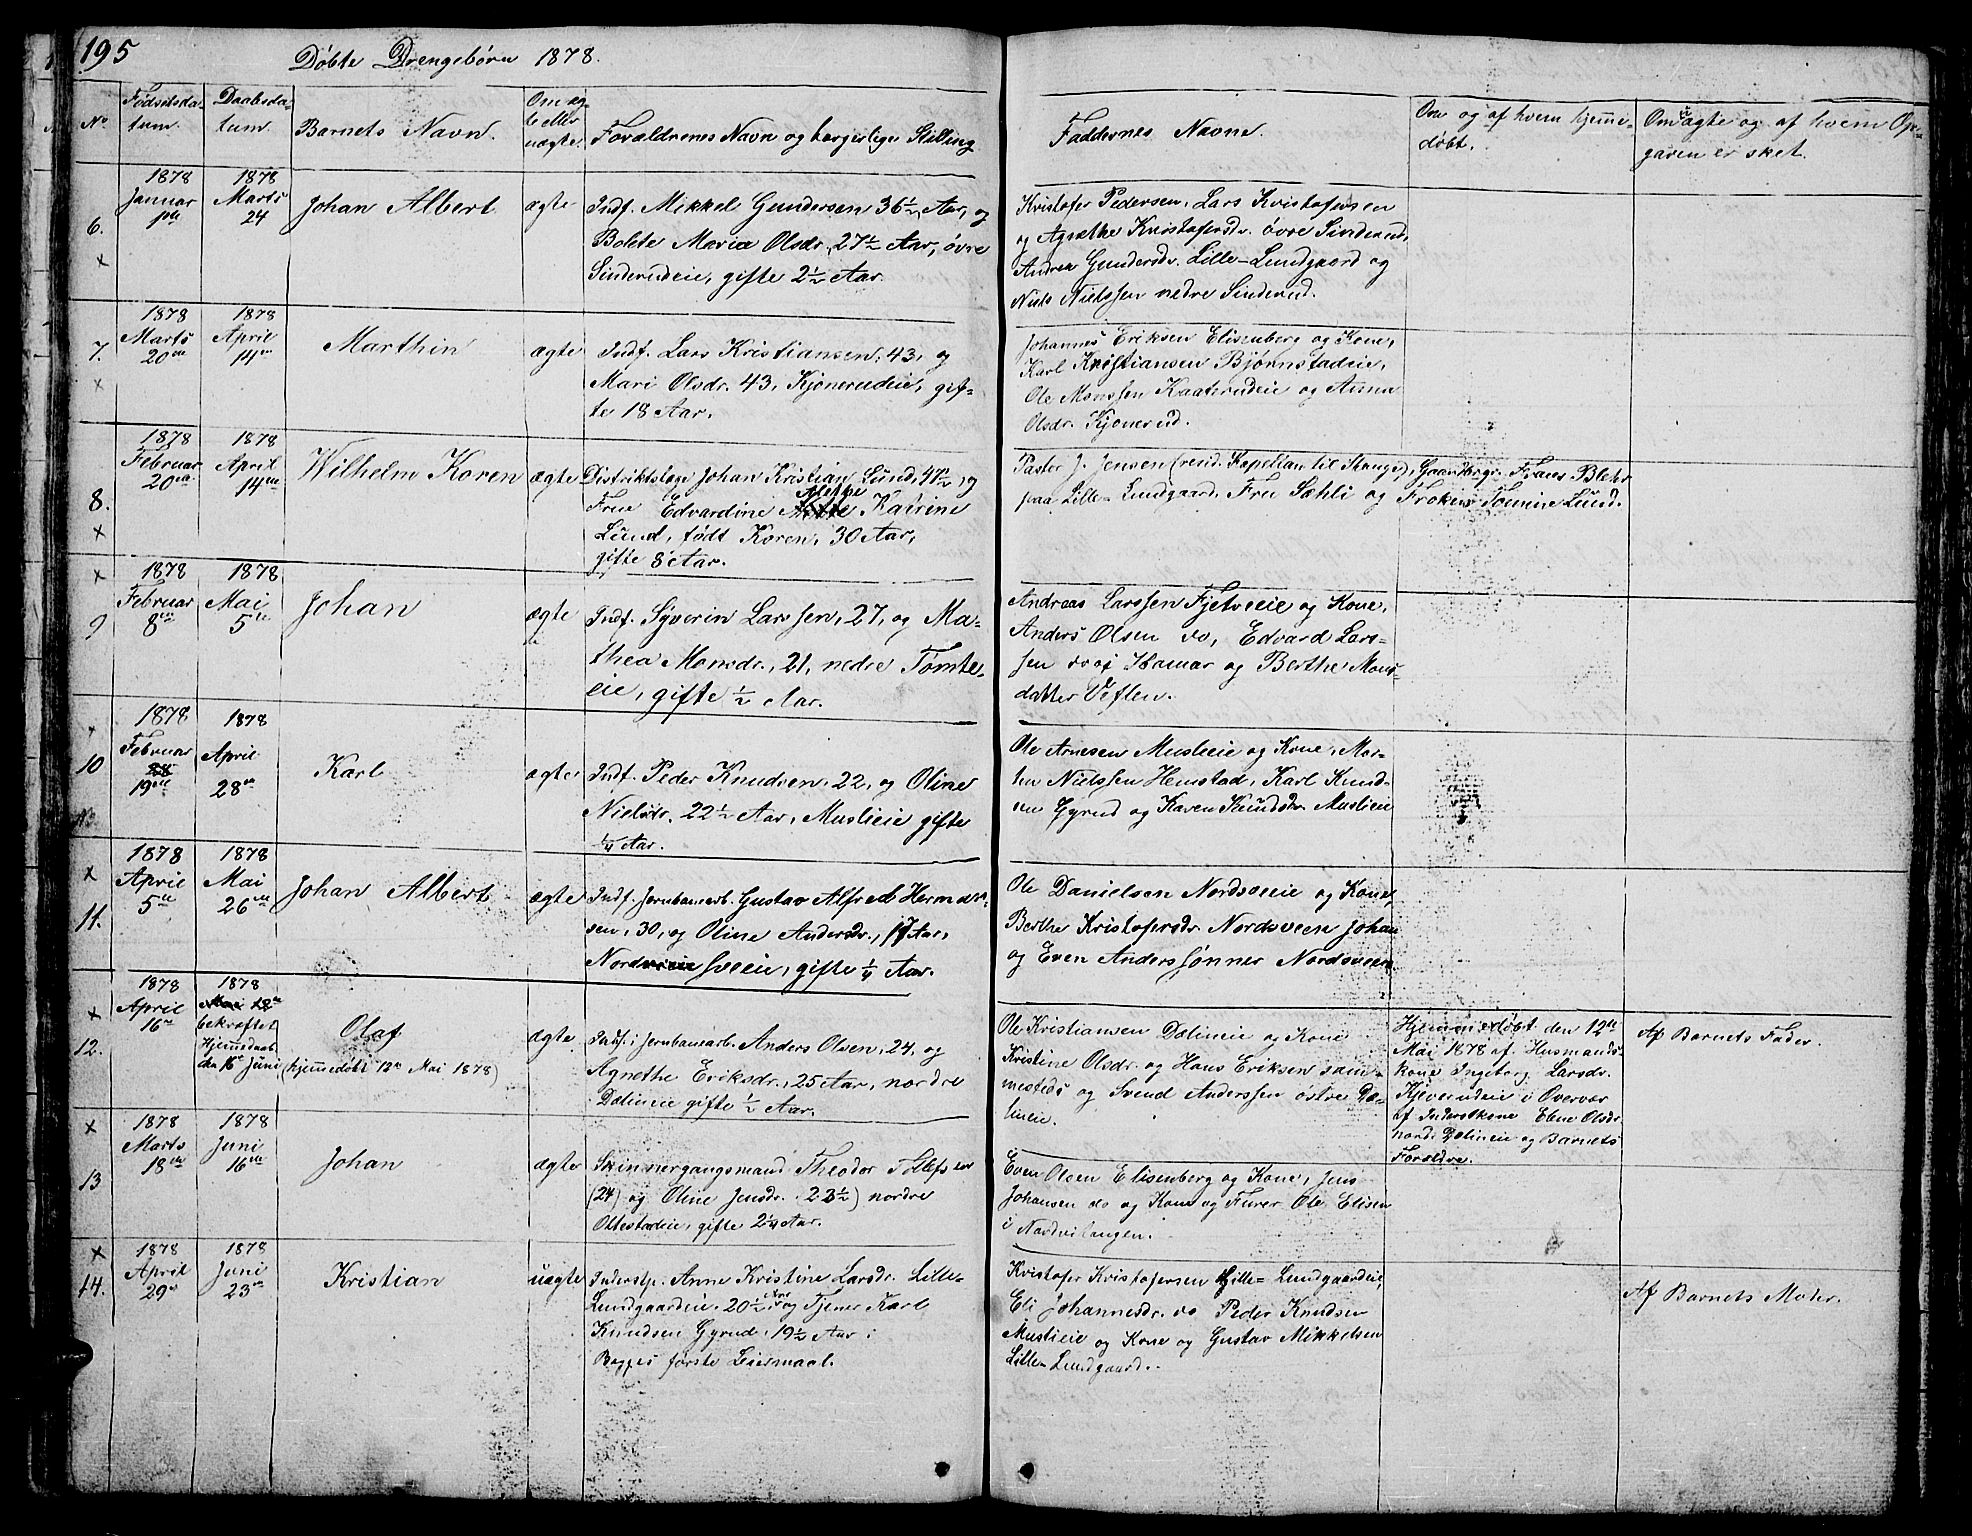 195
Döbte Drengebörn 1878.
No
Födselsda-
tum.
Daabsda-
tum.
Barnets Navn.
Om æg-
te eller
uægte.
Forældrenes Navn og borgerlige Stilling
Faddernes Navne.
Om og af hvem hjemme-
döbt.
Om uægte og af hvem Op-
gaven er sket.
6.
x
1878
Januar
1878
Marts
24
Johan Albert
ægte
Indf. Mikkel Gundersen 36½ Aar, og
Bolete Maria Olsdr. 27½ Aar, övre
Sinderudeie, gifte 2½ Aar.
Kristofer Pedersen, Lars Kristofersen
og Agnethe Kristofersdr. övre Sinderud,
Andrea Gundersdr. Lille-Lundgaard og
Niels Nielssen nedre Sinderud.
7.
x
1878
Marts
20de
1878
April
14de
Marthin
ægte
Indf. Lars Kristiansen, 43, og
Mari Olsdr. 43, Kjonerudeie, gif-
te 18 Aar.
Johannes Eriksen Elisenberg og Kone,
Karl Kristiansen Bjørnstadeie,
Ole Monssen Kaaterudeie og Anna
Olsdr. Kjonerud.
8.
x
1878
Februar
20de
1878
April
14de
Wilhelm Koren
ægte
Distriktslæge Johan Kristian Lund, 41½, og
Frue Edvardine Alethe Katrine
Lund, födt Koren, 30 Aar,
gifte 8 Aar.
Pastor J. Jensen (resid. Kapellan til Stange), Gaardbrgr. Frans Blehr
paa Lille-Lundgaard, Fru Sæhli og Fröken Tomine Lund.
x
9
1878
Februar
8de
1878
Mai
5te
Johan
ægte
Indf. Syverin Larssen, 27, og Ma-
thea Monsdr., 21, nedre Tömte-
eie, gifte ½ Aar.
Andreas Larssen Fjetveeie og Kone,
Anders Olsen do, Edvard Lars-
sen do og Hamar og Berthe Mons-
datter Veflen.
x
10
1878
Februar
19de
1878
April
28de
Karl
ægte
Indf. Peder Knudsen, 22, og Oline
Nielsdr. 22½ Aar, Muslieie gifte
¼ Aar.
Ole Arnesen Muslieie og Kone, Mar-
tin Nielssen Hemstad, Karl Knud-
sen Gyrud og Karen Knudsdr. Muslieie
x
11.
1878
April
5te
1878
Mai
26de
Johan Albert
ægte
Indf. Jernbanearb. Gustav Alfred Herman-
sen, 30, og Oline Andersdr., 17 Aar,
Nordsveeie, gifte ¼ Aar.
Ole Danielsen Nordsveeie og Kone,
Berthe Kristofersdr. Nordsveen Johan
og Even Anderssönner Nordsveen.
x
12.
1878
April
16de
1878
Mai 12te
bekræftet
Hjemmedaab
den 16de Juni
Olaf
(hjemmedöbt 12te Mai 1878)
ægte
Indf. i Jernbanearb. Anders Olsen, 24, og
Agnethe Eriksdr., 25 Aar, nordre
Dælineie gifte ½ Aar.
Ole Kristiansen Dælineie og Kone
Kristine Olsdr. og Hans Eriksen sam-
mesteds og Svend Anderssen östre Dæ-
lineie.
Hjemmedöbt den 12te
Mai 1878 af Husmands-
kone Ingeborg Larsdr.
Kjeverudeie i Overvær
af Inderstkone Eline Olsdr.
nord. Dælineie og Barnets
Forældre.
Af Barnets Fader.
x
13
1878
Marts
18de
1878
Juni
16de
Johan
ægte
Skinnergangsmand Theodor Tollefsen
(24) og Oline Jensdr. (23½) nordre
Ottestadeie, gifte 2¼ Aar.
Even Olsen Elisenberg og Kone, Jens
Johansen do og Kone og Furer Ole Elisen
i Nordvitangen.
x
14.
1878
April
29de
1878
Juni
23de
Kristian
uægte
Inderstp. Anne Kristine Larsdr. Lille-
Lundgaardeie, 20½ Aar og Tjener Karl
Knudsen Gyrud, 19½ Aar;
Begges förste Leiermaal.
Kristofer Kristofersen Lille-Lundgaardeie,
Eli Johannesdr. do Peder Knudsen
Muslieie og Kone og Gustav Mikkelsen
Lille-Lundgaard.
Af Barnets Moder.